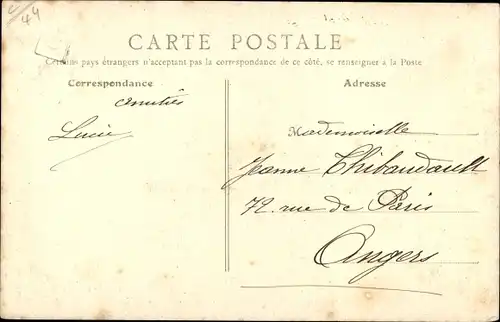 44
CARTE POSTALE
Certains pays étrangers n'acceptant pas la correspondance de ce côté, se renseigner à la Poste
Correspondance
amitiés
Lucie
Adresse
Mademoiselle
Jeanne Thibaudault
72. rue de Paris
Angers